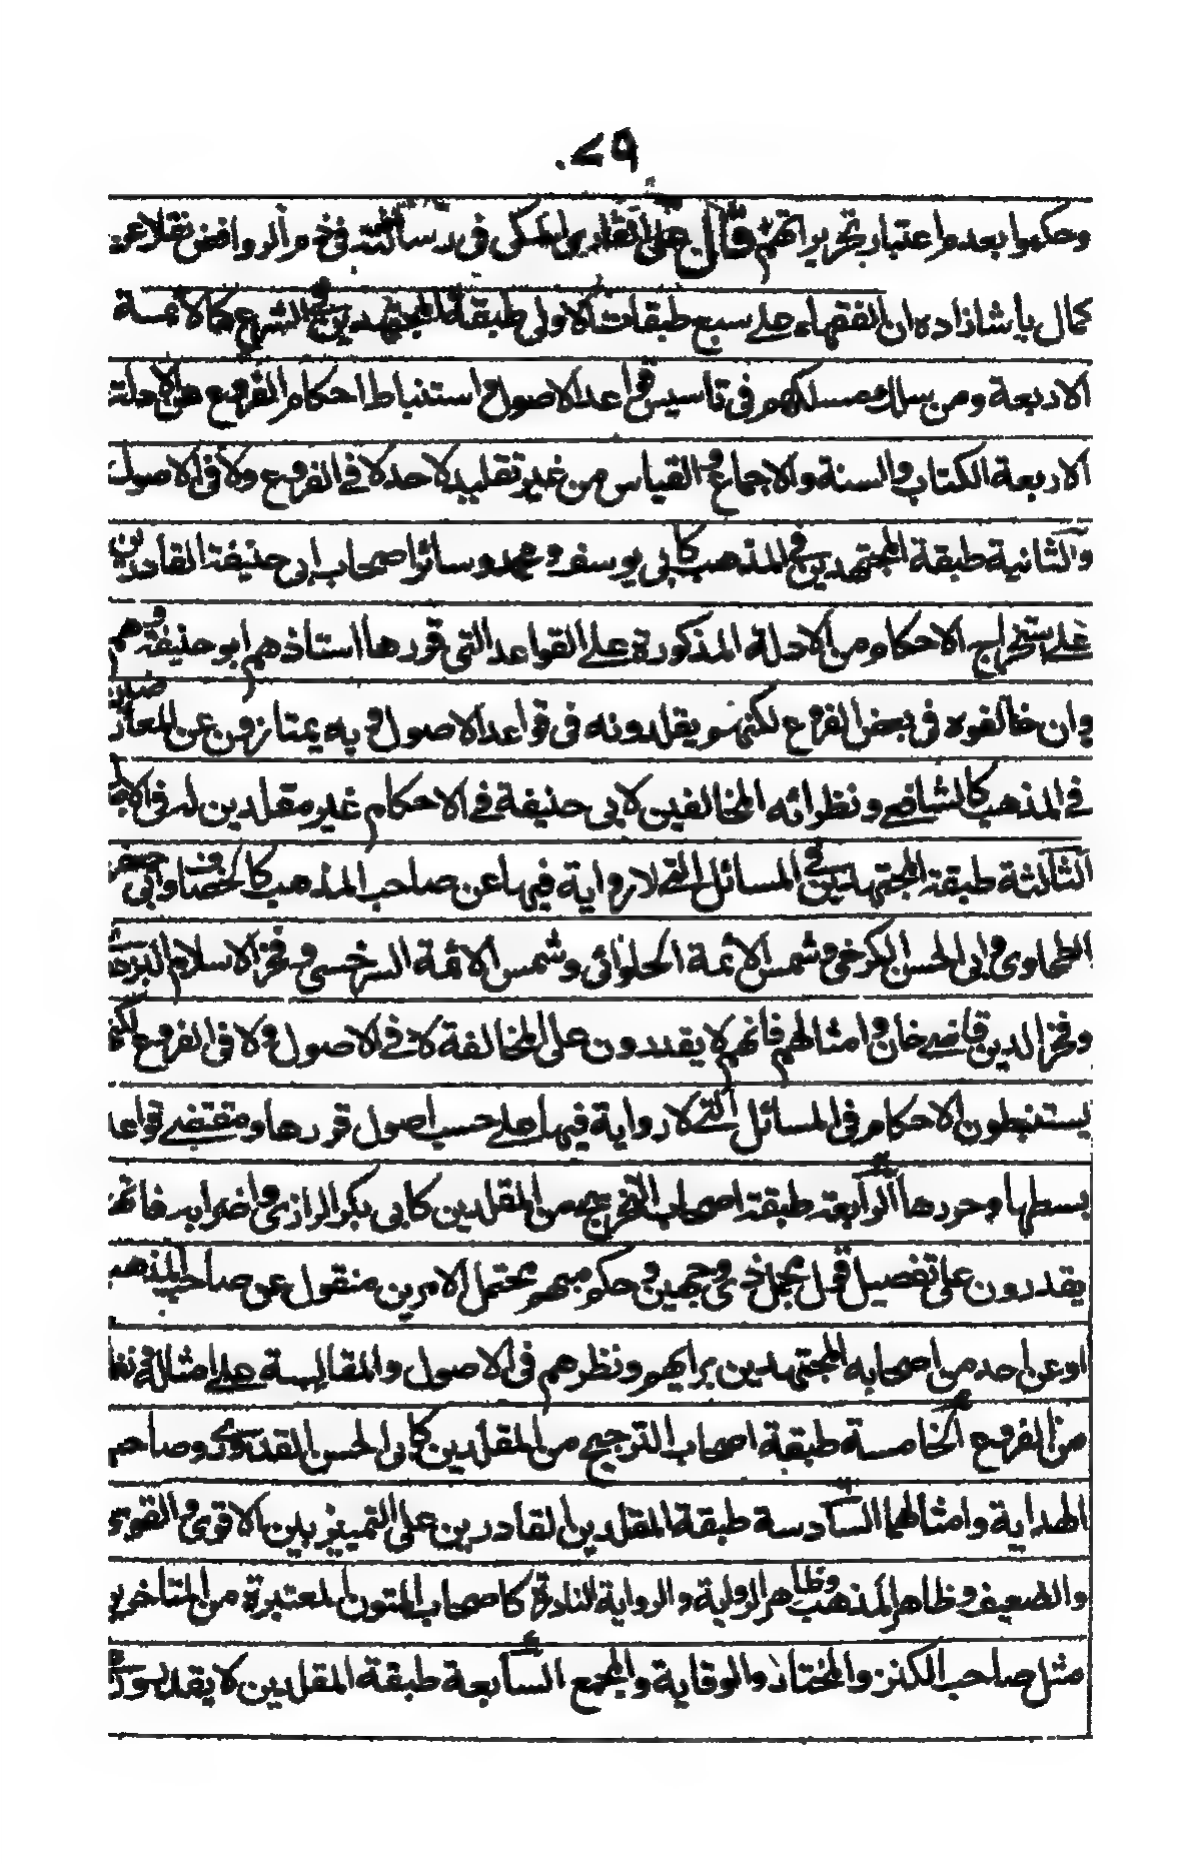 ۲۹
وحكموا بعدم اعتبار تحريراتهم قال على القارى المكى فى رسالته فى ذم الروافض نقلا عن
كمال پاشا زاده ان الفقهاء على سبع طبقات الاولى طبقة المجتهدين فى الشرع كالائمة
الاربعة ومن سلك مسلكهم فى تاسيس قواعد الاصول و استنباط احكام الفروع عن الادلة
الاربعة الكتاب والسنة والاجماع والقياس من غير تقليد لاحد لا فى الفروع ولا فى الاصول
والثانية طبقة المجتهدين فى المذهب كابى يوسف ومحمد وسائر اصحاب ابى حنيفة القادرين
على استخراج الاحكام من الادلة المذكورة على القواعد التى قررها استاذهم ابو حنيفة وهم
وان خالفوه فى بعض الفروع لكنهم يقلدونه فى قواعد الاصول و به يمتازون عن المعارضين
فى المذهب كالشافعى ونظرائه المخالفين لابى حنيفة فى الاحكام غير مقلدين له فى الاصول
الثالثة طبقة المجتهدين فى المسائل التى لا رواية فيها عن صاحب المذهب كالخصاف وابى جعفر
الطحاوى وابى الحسن الكرخى وشمس الائمة الحلوائى وشمس الائمة السرخسى وفخر الاسلام البزدوى
وفخر الدين قاضى خان و امثالهم فانهم لا يقدرون على المخالفة لا فى الاصول ولا فى الفروع لكنهم
يستنبطون الاحكام فى المسائل التى لا رواية فيها على حسب اصول قررها ومقتضى قواعد
بسطها وحررها الرابعة طبقة اصحاب التخريج من المقلدين كابى بكر الرازى واضرابه فانهم
يقدرون على تفصيل قول مجمل ذى وجهين وحكم مبهم محتمل الامرين منقول عن صاحب المذهب
او عن احد من اصحابه المجتهدين برايهم ونظرهم فى الاصول والمقايسة على امثاله ونظائره
من الفروع الخامسة طبقة اصحاب الترجيح من المقلدين كابى الحسن القدورى وصاحب
الهداية وامثالهما السادسة طبقة المقلدين القادرين على التمييز بين الاقوى والقوى
والضعيف وظاهر المذهب وظاهر الرواية والرواية النادرة كاصحاب المتون المعتبرة من المتاخرين
مثل صاحب الكنز والمختار والوقاية والمجمع السابعة طبقة المقلدين لا يقدرون